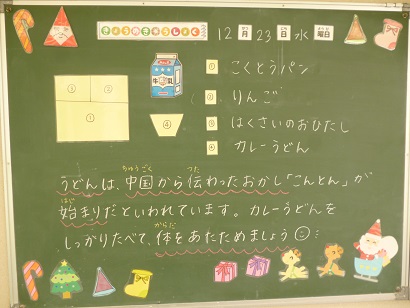 きょうのきゅうしょく 12月23日水曜日
① こくとうパン
② りんご
③ はくさいのおひたし
④ カレーうどん
① ②
③
④
牛乳
うどんは、中国から伝わったおかし「こんとん」が
始まりだといわれています。カレーうどんを
しっかりたべて、体をあたためましょう